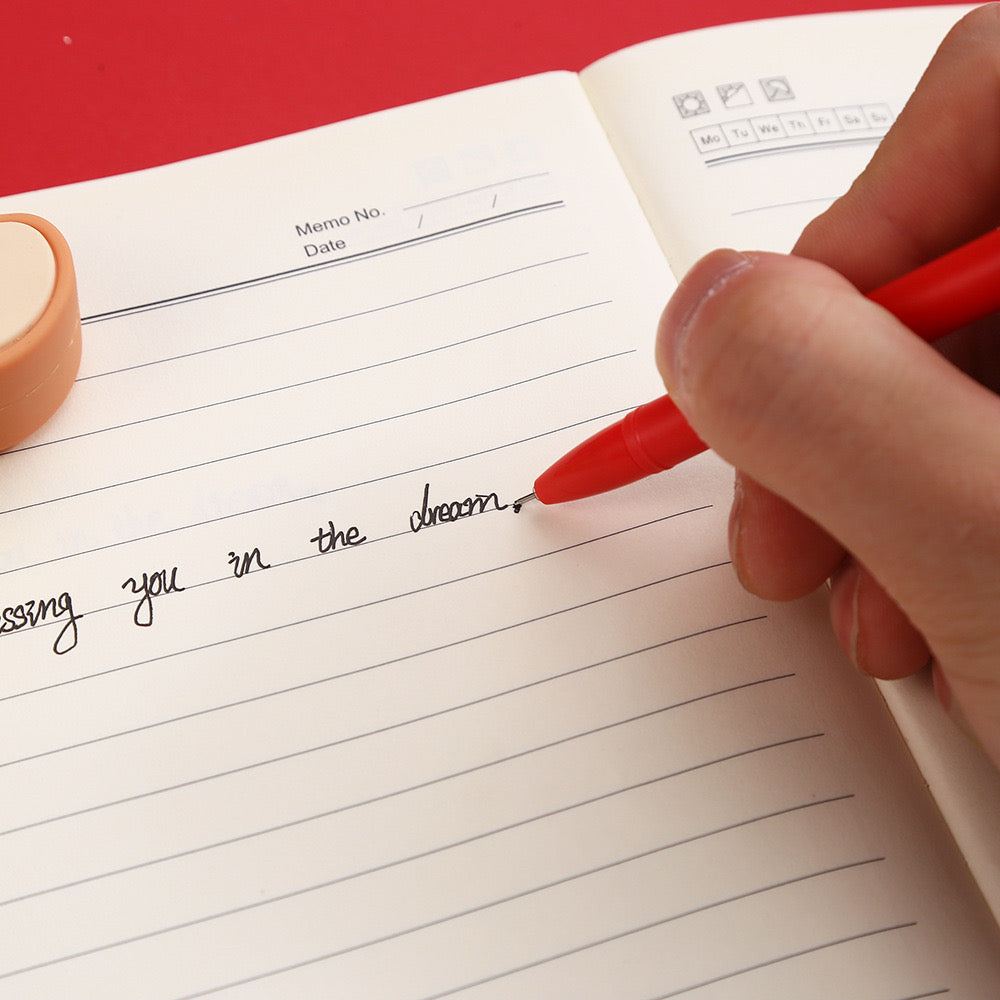 Memo No.
Date / /
Mo Tu We Th Fr Sa Su
ssing you in the dream.